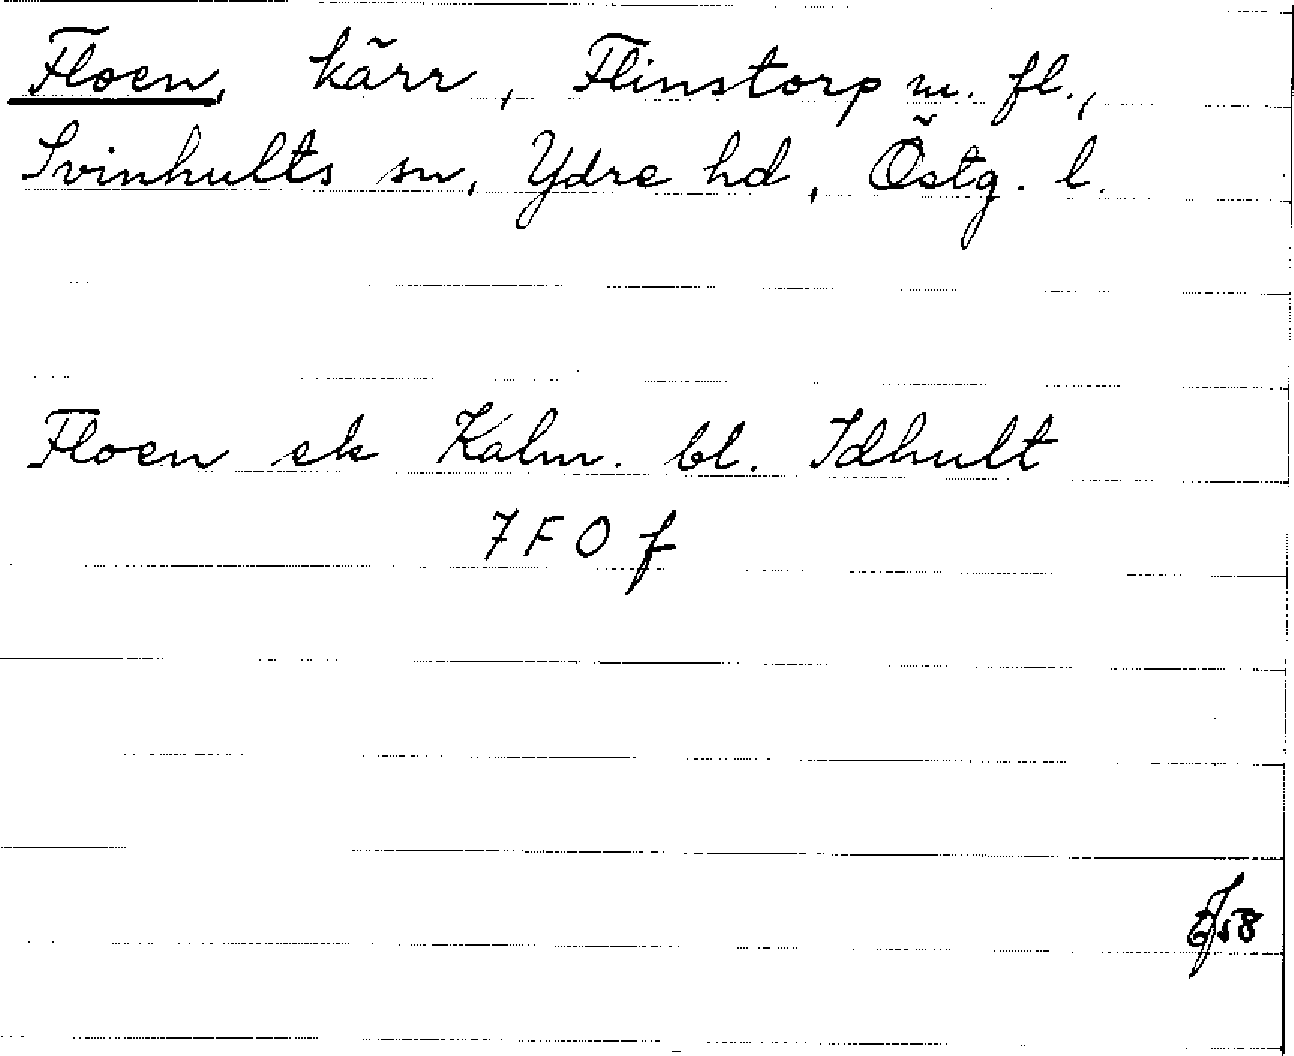 Floen, kärr, Flinstorp m. fl.,
Svinhults sn, Ydre hd, Östg. l.
Floen ek Kalm. bl. Idhult
7 F O f